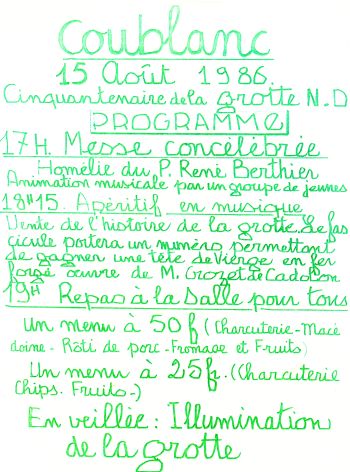 Coublanc
15 Août 1986.
Cinquantenaire de la grotte N.D
PROGRAMME
17H. Messe concélébrée
Homélie du P. René Berthier
Animation musicale par un groupe de jeunes
18H15. Apéritif en musique
Vente de l'histoire de la grotte. Le fas
cicule portera un numéro permettant
de gagner une tête de Vierge en fer
forgé œuvre de M. Crozet de Cadollon
19H Repas à la Salle pour tous
Un menu à 50f (Charcuterie-Macé
doine - Rôti de porc - Fromage et Fruits)
Un menu à 25f. (Charcuterie
Chips. Fruits.)
En veillée : Illumination
de la grotte